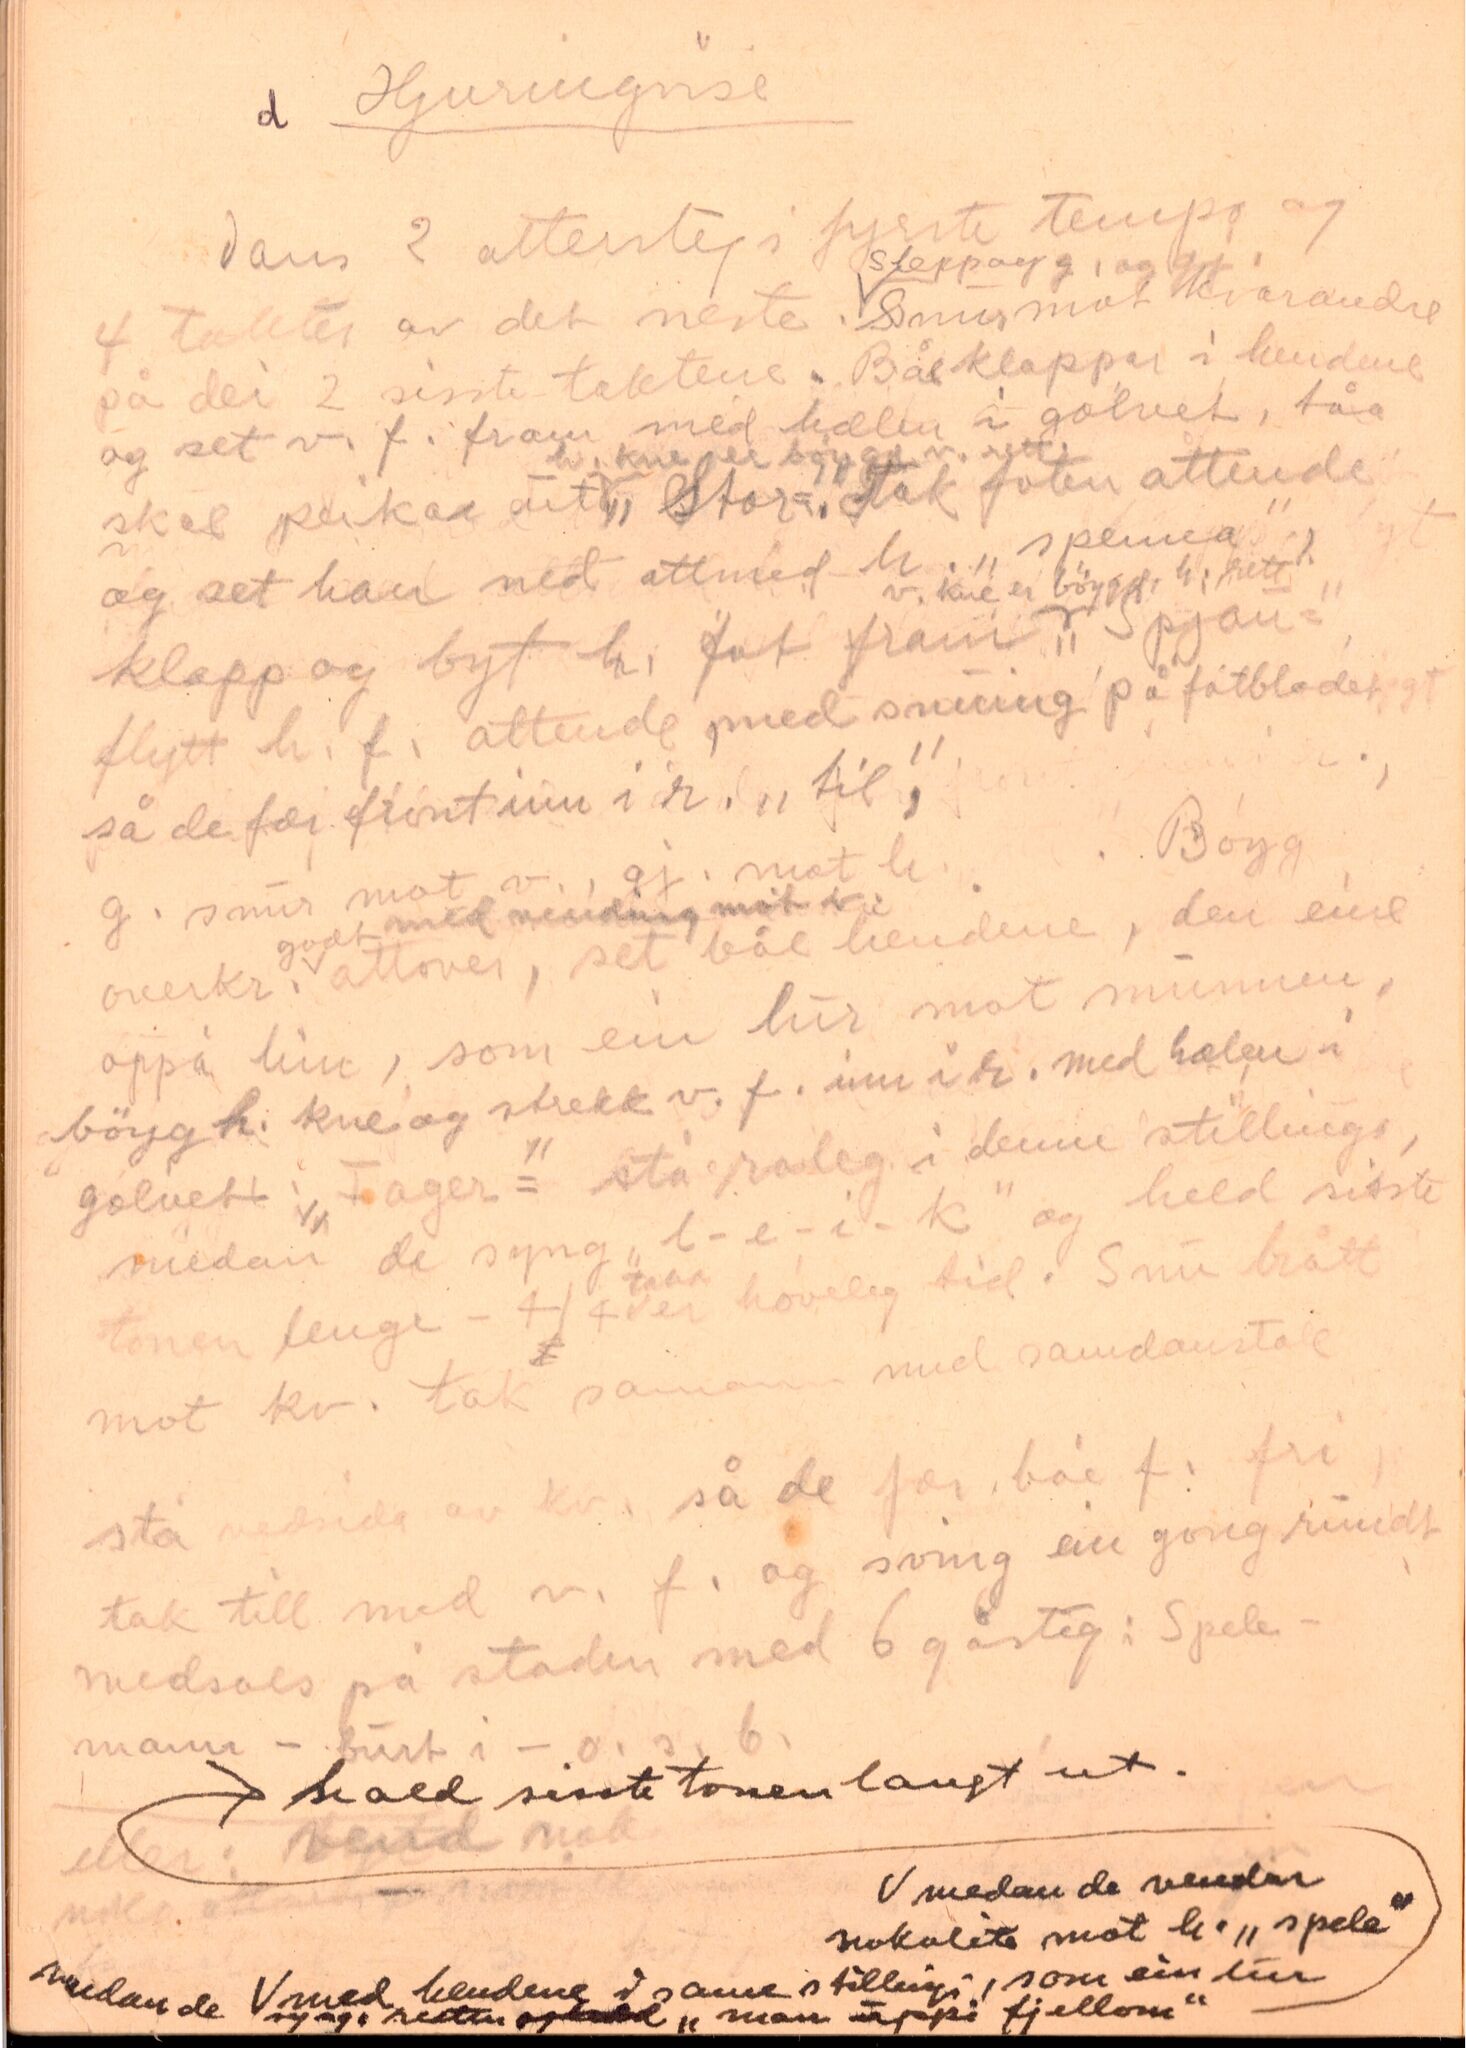 d Hjuringvise
Dans 2 attersteg i fyrste tempo og
steppog g. og gj.
4 takter av det neste. Snur mot kvarandre
på dei 2 sisste taktene. Båe klappar i hendene
og set v. f. fram med hælen i golvet, tåa
h. kne er böygd v. rett.
skal peikar ut „Stor=". Tak foten attende
og set han ned attmed h. „spenna",
v. kne er böygd, h. rett.
klapp og byt h. fot fram „Spjau="
flytt h. f. attende, med snuing på fotbladet
så de fær front inn i r. „til",
g. snur mot v., gj. mot h. Böyg
godt med vending mot v.
overkr. attover, set båe hendene, den eine
oppå hin, som ein lur mot munnen,
böyg h. kne og strekk v. f. inn i r. med hælen i
golvet: „Fager=" stå roleg i denne stillinga,
medan de syng „l-e-i-k" og held sisste
tonen lenge - 4/4 er høveleg tid. Snu brått
mot kv. tak samann med samdanstak
stå vedsida av kv. så de fær båe f. fri,
tak till med v. f. og sving ein gong rundt
medsols på staden med 6 gåsteg: Spele-
mann - burt i - o. s. b.
hald sisste tonen langt ut.
eller: vend nok
V medan de vendar
nokolite mot h. „spele"
medan de V med hendene i same stilling, som ein lur
syng. „man uppi fjellom"